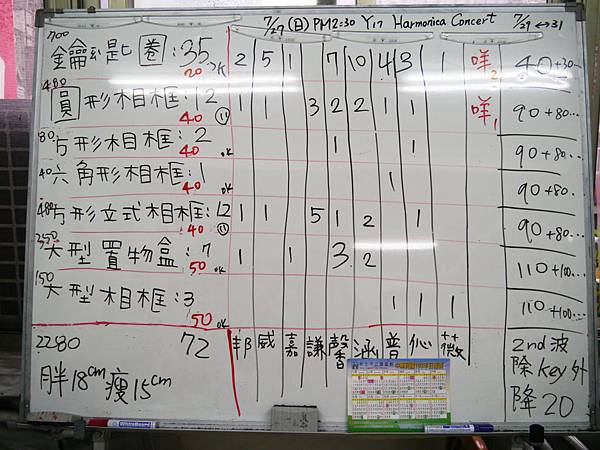 7/29(日)PM2:30 Yin Harmonica Concert 7/29↔31
700
金鑰匙圈:35 20 OK 2 5 1 7 10 4 3 1 咩2 40+30…
480
圓形相框:12 40 1 1 3 2 2 1 1 咩1 90+80…
80
方形相框:2 40 OK 1 1 90+80…
40
六角形相框:1 40 OK 1 90+80…
480
方形立式相框:12 40 1 1 5 1 2 1 90+80…
350
大型置物盒:7 50 OK 1 1 3 2 110+100…
150
大型相框:3 50 OK 1 1 1 110+100…
2280 72 邦 威 嘉 謙 馨 涵 普 心 薇
胖18cm瘦15cm
2nd 波
除key外
降20
WhiteBoard